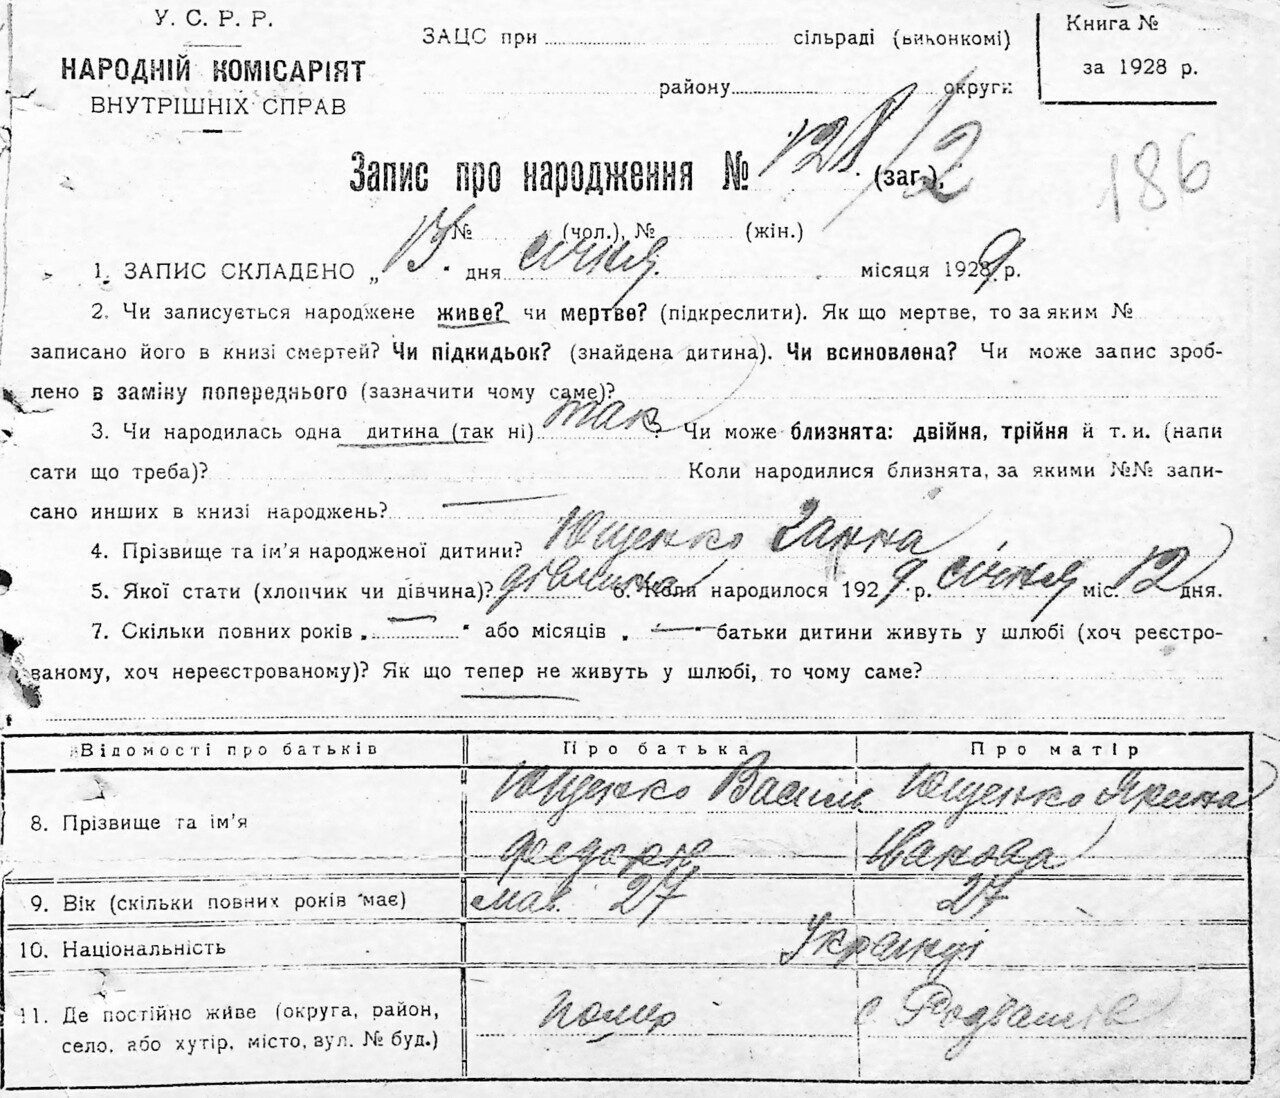 У. С. Р. Р.
НАРОДНІЙ КОМІСАРІЯТ
ВНУТРІШНІХ СПРАВ
ЗАЦС при сільраді (виконкомі)
району округи
Книга №
за 1928 р.
186
Запис про народження № 128/2 (заг.),
№ (чол.), № (жін.)
1. ЗАПИС СКЛАДЕНО „13" дня січня місяця 1929 р.
2. Чи записується народжене живе? чи мертве? (підкреслити). Як що мертве, то за яким №
записано його в книзі смертей? Чи підкидьок? (знайдена дитина). Чи всиновлена? Чи може запис зроб-
лено в заміну попереднього (зазначити чому саме)?
3. Чи народилась одна дитина (так ні) так? Чи може близнята: двійня, трійня й т. и. (напи
сати що треба)? Коли народилися близнята, за якими №№ запи-
сано инших в книзі народжень? —
4. Прізвище та ім'я народженої дитини? Ющенко Ганна
5. Якої стати (хлопчик чи дівчина)? дівчина 6. Коли народилося 1929 р. січня міс. 12 дня.
7. Скільки повних років „—" або місяців „—" батьки дитини живуть у шлюбі (хоч реєстро-
ваному, хоч нереєстрованому)? Як що тепер не живуть у шлюбі, то чому саме?
Відомості про батьків Про батька Про матір
8. Прізвище та ім'я Ющенко Василь Ющенко Ярина
Іванова
9. Вік (скільки повних років має) мав 27 27
10. Національність Українці
11. Де постійно живе (округа, район, помер с.
село, або хутір, місто, вул. № буд.)